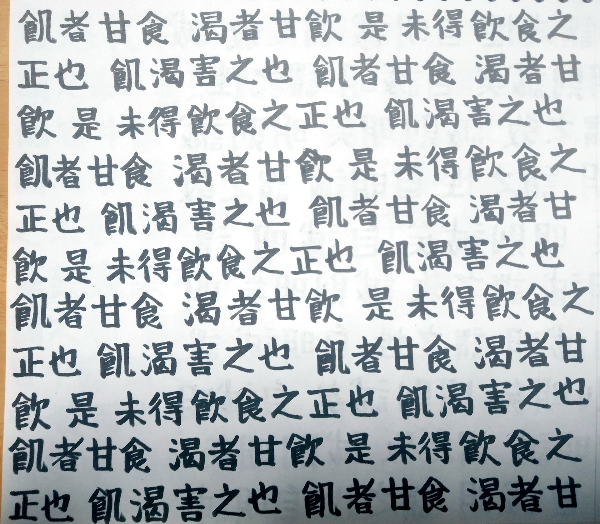 飢者甘食 渴者甘飮 是 未得飮食之
正也 飢渴害之也 飢者甘食 渴者甘
飮 是 未得飮食之正也 飢渴害之也
飢者甘食 渴者甘飮 是 未得飮食之
正也 飢渴害之也 飢者甘食 渴者甘
飮 是 未得飮食之正也 飢渴害之也
飢者甘食 渴者甘飮 是 未得飮食之
正也 飢渴害之也 飢者甘食 渴者甘
飮 是 未得飮食之正也 飢渴害之也
飢者甘食 渴者甘飮 是 未得飮食之
正也 飢渴害之也 飢者甘食 渴者甘